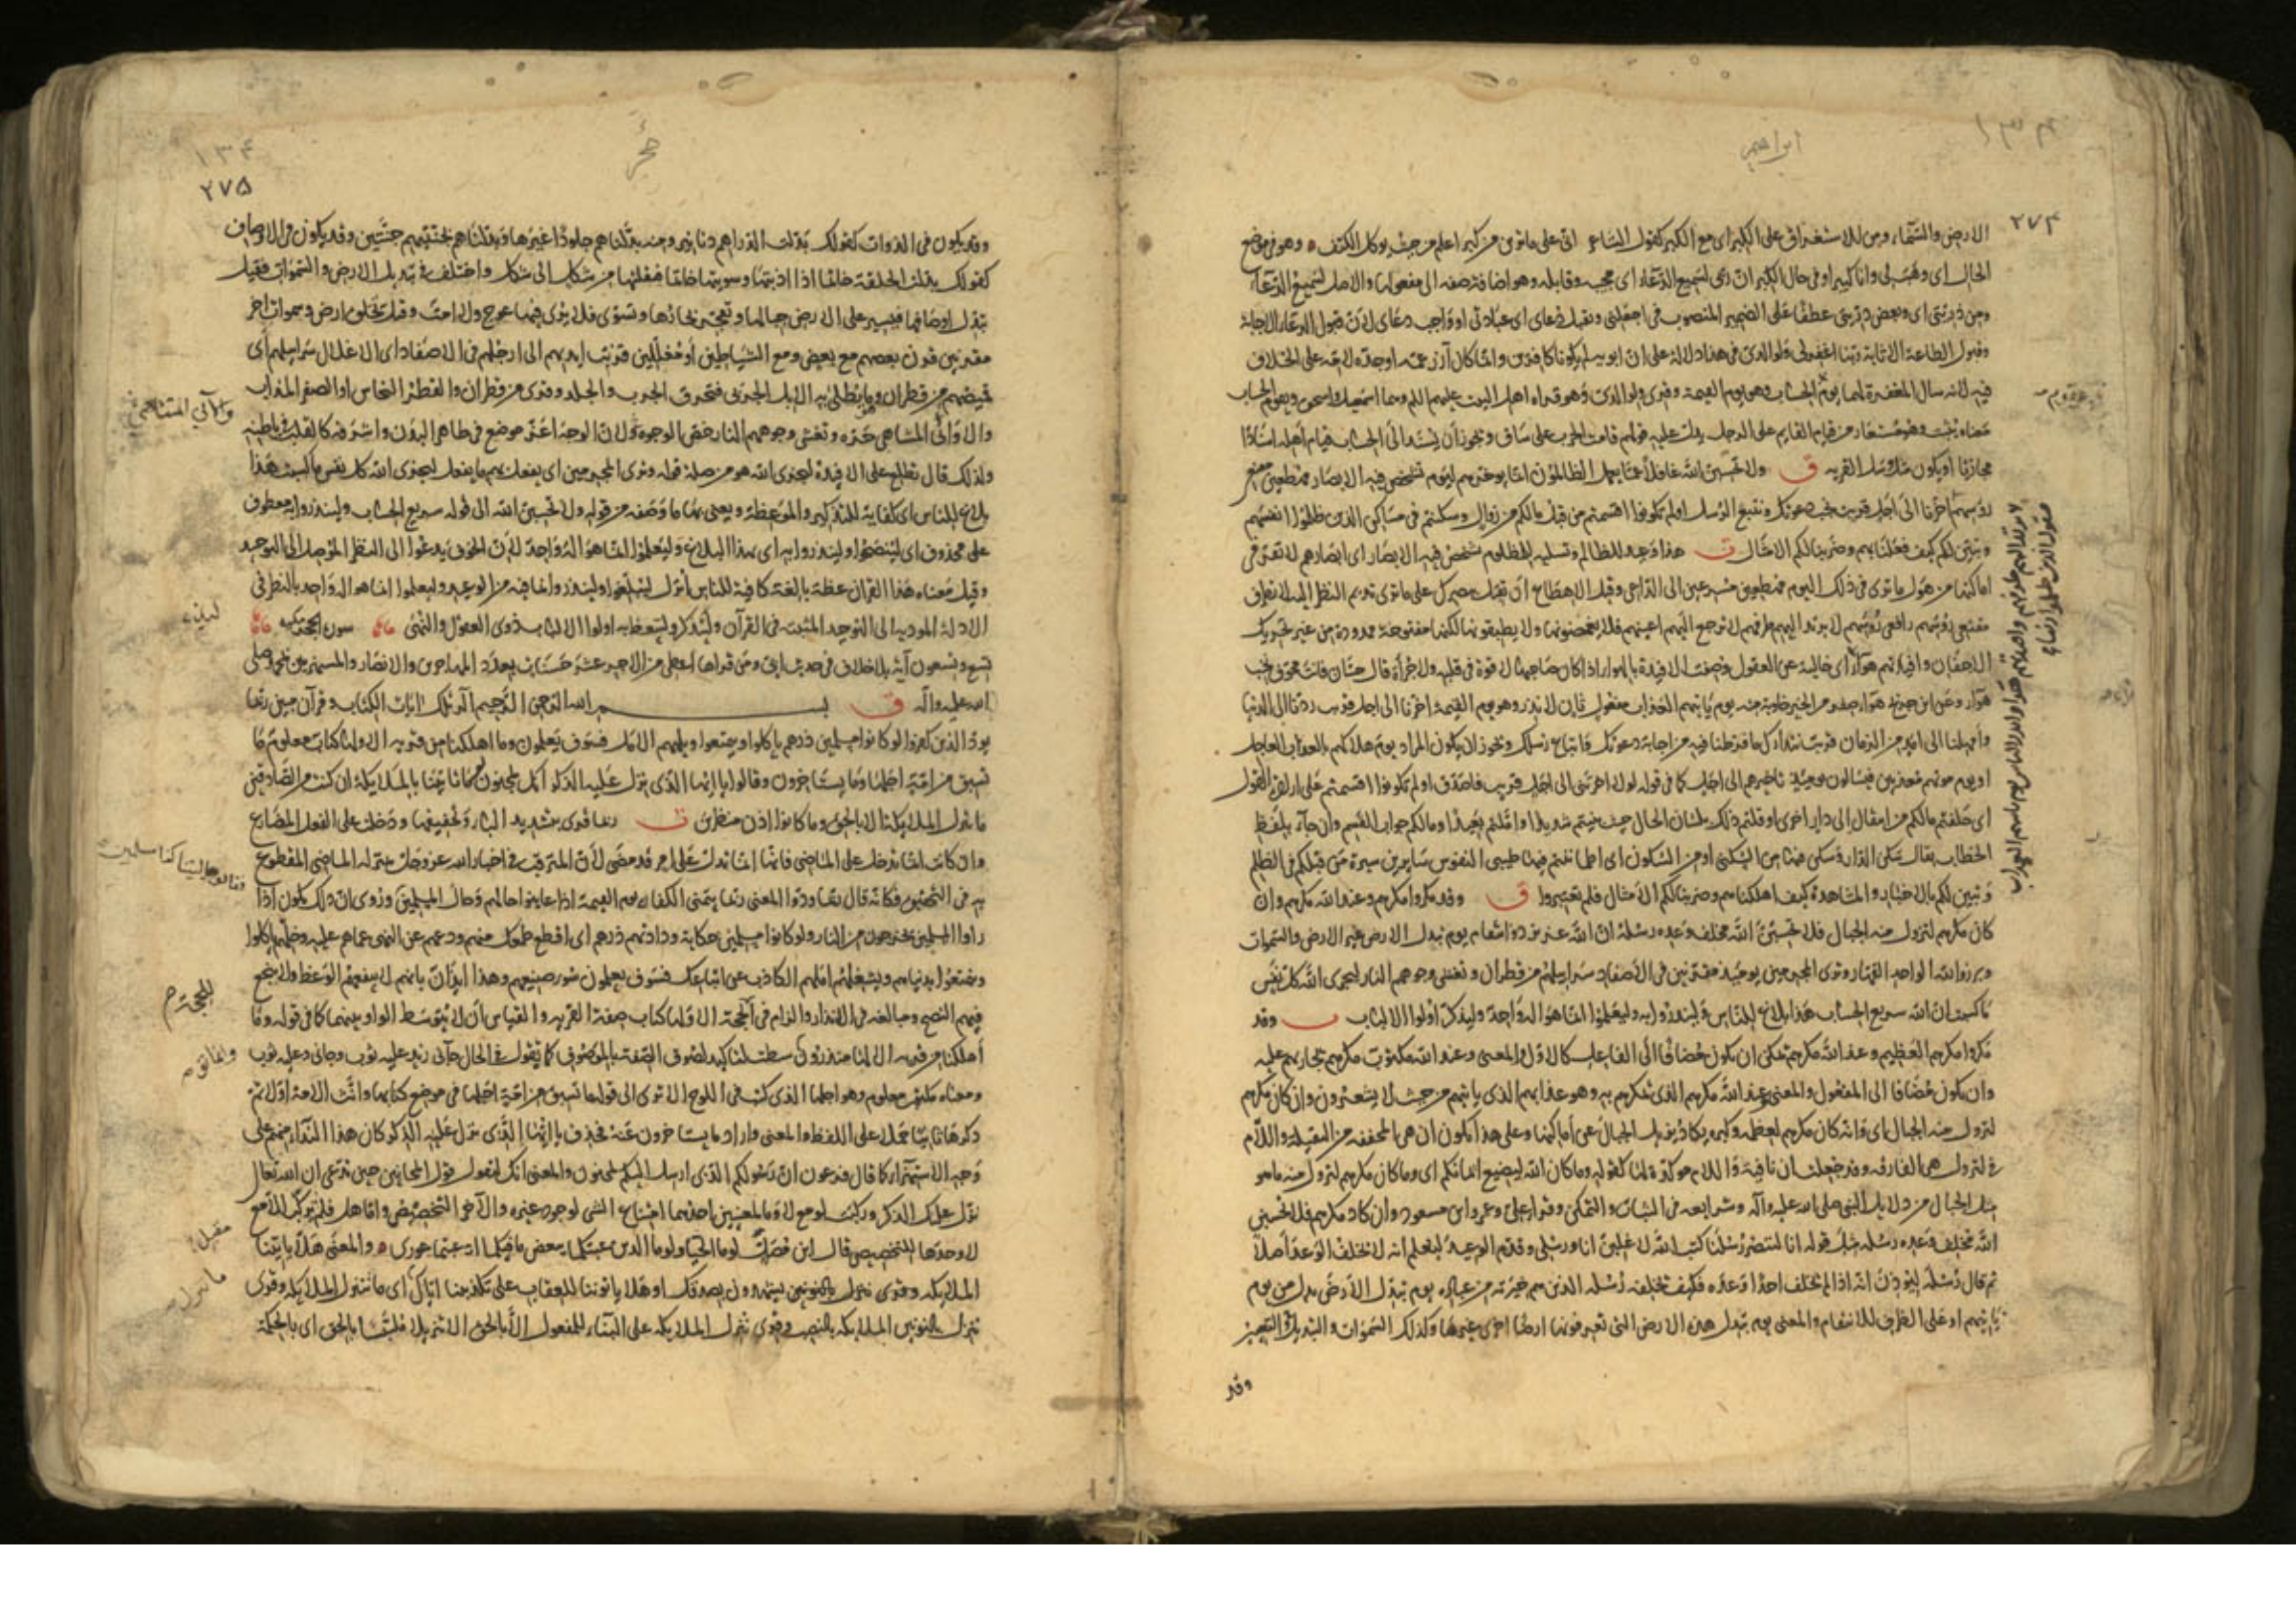 ابراهيم
٢٧٤
الارض والسماء ومن للاستغراق على الكبر اى مع الكبر كقول الشاعر انى على ماترين من كبر اعلم من حيث يوكل الكتف وهو فى موضع
الحال اى وهب لى وانا كبير او فى حال الكبر ان ربى لسميع الدعاء اى مجيبه وقابله وهو اضافة صفة الى مفعولها والاصل لسميع الدعاء
ومن ذريتى اى وبعض ذريتى عطفا على الضمير المنصوب فى اجعلنى وتقبل دعاى اى عبادتى او واجب دعاى لان قبول الدعاء الاجابة
وقبول الطاعة الاثابة ربنا اغفر لى ولوالدى فى هذا دلالة على ان ابويه لم يكونا كافرين وانما كان آزر عمه او جده لامه على الخلاف
فيه لانه سال المغفرة لهما يوم الحساب وهو يوم القيمة وقرى ولولدى وهو قراءة اهل البيت عليهم السلم وهما اسمعيل واسحق ويقوم الحساب
معناه يثبت وهو مستعار من قيام القايم على الرجل يدل عليه قولهم قامت الحرب على ساق ويجوز ان يسند الى الحساب قيام اهله اسنادا
مجازيا او يكون مثل وسل القرية ق ولا تحسبن الله غافلا عما يعمل الظالمون انما يوخرهم ليوم تشخص فيه الابصار مهطعين مقنعى
رؤسهم اخرنا الى اجل قريب نجب دعوتك ونتبع الرسل اولم تكونوا اقسمتم من قبل مالكم من زوال وسكنتم فى مساكن الذين ظلموا انفسهم
وتبين لكم كيف فعلنا بهم وضربنا لكم الامثال ت هذا وعيد للظالم وتسلية للمظلوم تشخص فيه الابصار اى ابصارهم لا تقر فى
اماكنها من هول ماترى فى ذلك اليوم مهطعين مسرعين الى الداعى وقيل الاهطاع ان تقبل ببصرك على ماترى تديم النظر اليه لا تطرف
مقنعى رؤسهم رافعى رؤسهم لا يرتد اليهم طرفهم لا ترجع اليهم اعينهم فلا يغمضونها ولا يطبقونها لكنها مفتوحة ممدودة من غير تحريك
الاجفان وافئدتهم هواء اى خالية عن العقول وصفت الافئدة بالهواء اذا كان صاحبها لا قوة فى قلبه ولا جراة قال حسان فانت مجوف نخب
هواء وعن ابن جريج هواء صفر من الخير خاوية منه يوم ياتيهم العذاب مفعول ثان لانذر وهو يوم القيمة اخرنا الى اجل قريب ردنا الى الدنيا
وامهلنا الى امد من الزمان قريب نتدارك ما فرطنا فيه من اجابة دعوتك واتباع رسلك ويجوز ان يكون المراد يوم هلاكهم بالعذاب العاجل
او يوم موتهم معذبين فيسالون يومئذ تاخيرهم الى اجل كما فى قوله لولا اخرتنى الى اجل قريب فاصدق اولم تكونوا اقسمتم على ارادة القول
اى حلفتم مالكم من انتقال الى دار اخرى او قلتم ذلك بلسان الحال حيث بنيتم شديدا واملتم بعيدا ومالكم جواب القسم وان جاء بلفظ
الخطاب يقال سكن الدار وسكن فيها من السكنى او من السكون اى اطماننتم فيها طيبى النفوس سايرين سيرة من قبلكم فى الظلم
وتبين لكم بالاخبار والمشاهدة كيف اهلكناهم وضربنا لكم الامثال فلم تعتبروا ق وقد مكروا مكرهم وعند الله مكرهم وان
كان مكرهم لتزول منه الجبال فلا تحسبن الله مخلف وعده رسله ان الله عزيز ذو انتقام يوم تبدل الارض غير الارض والسموات
وبرزوا لله الواحد القهار وترى المجرمين يومئذ مقرنين فى الاصفاد سرابيلهم من قطران وتغشى وجوههم النار ليجزى الله كل نفس
ماكسبت ان الله سريع الحساب هذا بلاغ للناس ولينذروا به وليعلموا انما هو اله واحد وليذكر اولوا الالباب ت وقد
مكروا مكرهم العظيم وعند الله مكرهم يمكن ان يكون مضافا الى الفاعل كالاول والمعنى وعند الله مكتوب مكرهم يجازيهم عليه
وان يكون مضافا الى المفعول والمعنى وعند الله مكرهم الذى يمكرهم به وهو عذابهم الذى ياتيهم من حيث لا يشعرون وان كان مكرهم
لتزول منه الجبال اى وانه كان مكرهم لعظمه وكبره يكاد يزيل الجبال عن اماكنها وعلى هذا تكون ان هى المخففة من الثقيلة واللام
فى لتزول هى الفارقة وقد جعلت ان نافية واللام موكدة لها كقوله وماكان الله ليضيع ايمانكم اى وماكان مكرهم لتزول منه ماهو
مثل الجبال من دلايل النبى صلى الله عليه وآله وشرايعه فى الثبات والتمكن وقرا على وعمر وابن مسعود وان كاد مكرهم فلا تحسبن
الله مخلف وعده رسله مثل قوله انا لننصر رسلنا كتب الله لاغلبن انا ورسلى وقدم الوعد ليعلم انه لا يخلف الوعد اصلا
ثم قال رسله ليوذن انه اذا لم يخلف احدا وعده فكيف يخلفه رسله الذين هم خيرته من عباده يوم تبدل الارض بدل من يوم
ياتيهم او على الظرف للانتقام والمعنى يوم تبدل هذه الارض التى تعرفونها ارضا اخرى غيرها وكذلك السموات والتبديل التغيير
وقد
لا يرتد اليهم طرفهم وافئدتهم هواء وانذر الناس يوم ياتيهم العذاب
فيقول الذين ظلموا ربنا
حجر
١٣٤
٢٧٥
وقد يكون فى الذوات كقولك بدلت الدراهم دنانير ومنه بدلناهم جلودا غيرها وبدلناهم بجنتيهم جنتين وقد يكون فى الاوصاف
كقولك بدلت الحلقة خاتما اذا اذبتها وسويتها خاتما فنقلتها من شكل الى شكل واختلف فى تبديل الارض والسموات فقيل
تبدل اوصافها فيسير على الارض جبالها وتفجر بحارها وتسوى فلا يرى فيها عوج ولا امت وقيل يخلق ارض وسموات اخر
مقرنين قرن بعضهم مع بعض ومع الشياطين او مغللين قرنت ايديهم الى ارجلهم فى الاصفاد اى الاغلال سرابيلهم اى
قميصهم من قطران وما يطلى به الابل الجربى فتحرق الجرب والجلد وقرى من قطران والقطر النحاس او الصفر المذاب
والآنى المتناهى حره وتغشى وجوههم النار خص الوجوه لان الوجه اعز موضع فى ظاهر البدن واشرفه كالقلب فى باطنه
ولذلك قال تطلع على الافئدة ليجزى الله هو من صلة قوله وترى المجرمين اى يفعل بهم ما يفعل ليجزى الله كل نفس ماكسبت هذا
بلاغ للناس اى كفاية للتذكير والموعظة ويعنى بهذا ما وصفه من قوله ولا تحسبن الله الى قوله سريع الحساب ولينذروا به معطوف
على محذوف اى لينصحوا ولينذروا به اى بهذا البلاغ وليعلموا انما هو اله واحد لان الخوف يدعوا الى النظر الموصل الى التوحيد
وقيل معناه هذا القران عظة بالغة كافية للناس انزل ليبلغوا ولينذروا بما فيه من الوعيد وليعلموا انما هو اله واحد بالنظر فى
الادلة المودية الى التوحيد المثبتة فى القرآن وليذكر وليتعظ به اولوا الالباب ذوى العقول والنهى سورة الحجر مكية
تسع وتسعون آية بلاخلاف فى حديث ابى ومن قراها اعطى من الاجر عشر حسنات بعدد المهاجرين والانصار والمستهزئين بمحمد صلى
الله عليه وآله ق بسم الله الرحمن الرحيم الر تلك ايات الكتاب وقرآن مبين ربما
يود الذين كفروا لو كانوا مسلمين ذرهم ياكلوا ويتمتعوا ويلههم الامل فسوف يعلمون وما اهلكنا من قرية الا ولها كتاب معلوم ما
تسبق من امة اجلها وما يستاخرون وقالوا يا ايها الذى نزل عليه الذكر انك لمجنون لو ما تاتينا بالملايكة ان كنت من الصادقين
ما ننزل الملايكة الا بالحق وما كانوا اذن منظرين ت ربما قرى بتشديد الباء وتخفيفها ودخلت على الفعل المضارع
وان كانت انما تدخل على الماضى فانها انما تدل على امر قد مضى لان المترقب فى اخبار الله عز وجل بمنزلة الماضى المقطوع
به فى التحقيق فكانه قال ربما ودوا المعنى ربما يتمنى الكفار يوم القيمة اذا عاينوا حالهم وحال المسلمين وروى ان ذلك يكون اذا
راوا المسلمين يخرجون من النار ولو كانوا مسلمين حكاية ودادتهم ذرهم اى اقطع طمعك منهم ودعهم عن النهى عما هم عليه وخلهم ياكلوا
ويتمتعوا بدنياهم ويشغلهم املهم الكاذب عن اتباعك فسوف يعلمون سوء صنيعهم وهذا ايذان بانهم لا ينفعهم الوعظ ولا ينجع
فيهم النصح ومبالغة فى الانذار والزام فى الحجة الا ولها كتاب صفة القرية والقياس ان لا يتوسط الواو بينهما كما فى قوله وما
اهلكنا من قرية الا لها منذرون وتوسطت لتاكيد لصوق الصفة بالموصوف كما يقول فى الحال جاءنى زيد عليه ثوب وجانى وعليه ثوب
ومعناه مكتوب معلوم وهو اجلها الذى كتب فى اللوح الا ترى الى قوله ما تسبق من امة اجلها فى موضع كتابها وانث الامة اولا ثم
ذكرها ثانيا حملا على اللفظ والمعنى واراد ما يستاخرون عنه فحذف يا ايها الذى نزل عليه الذكر كان هذا النداء منهم على
وجه الاستهزاء كما قال فرعون ان رسولكم الذى ارسل اليكم لمجنون والمعنى انك لتقول قول المجانين حين تدعى ان الله تعالى
نزل عليك الذكر وركبت لو مع لا وما لمعنيين احدهما امتناع الشى لوجود غيره والآخر التخصيص واما هل فلم يركب الا مع
لا وحدها للتخصيص قال ابن مقبل لوما الحيا ولوما الدين عبتكما ببعض مافيكما اذ عبتما عورى والمعنى هلا ياتينا
الملايكة وقرى تنزل بالنونين يشهدون بصدقك او هلا ياتوننا للعقاب على تكذيبنا اياك اى ما تنزل الملايكة وقرى
ننزل بالنونين الملايكة بالنصب وقرى تنزل الملايكة على البناء للمفعول الا بالحق الا تنزيلا ملتبسا بالحق اى بالحكمة
والآنى المتناهى
للحجة م
مقبل
ما تنزل